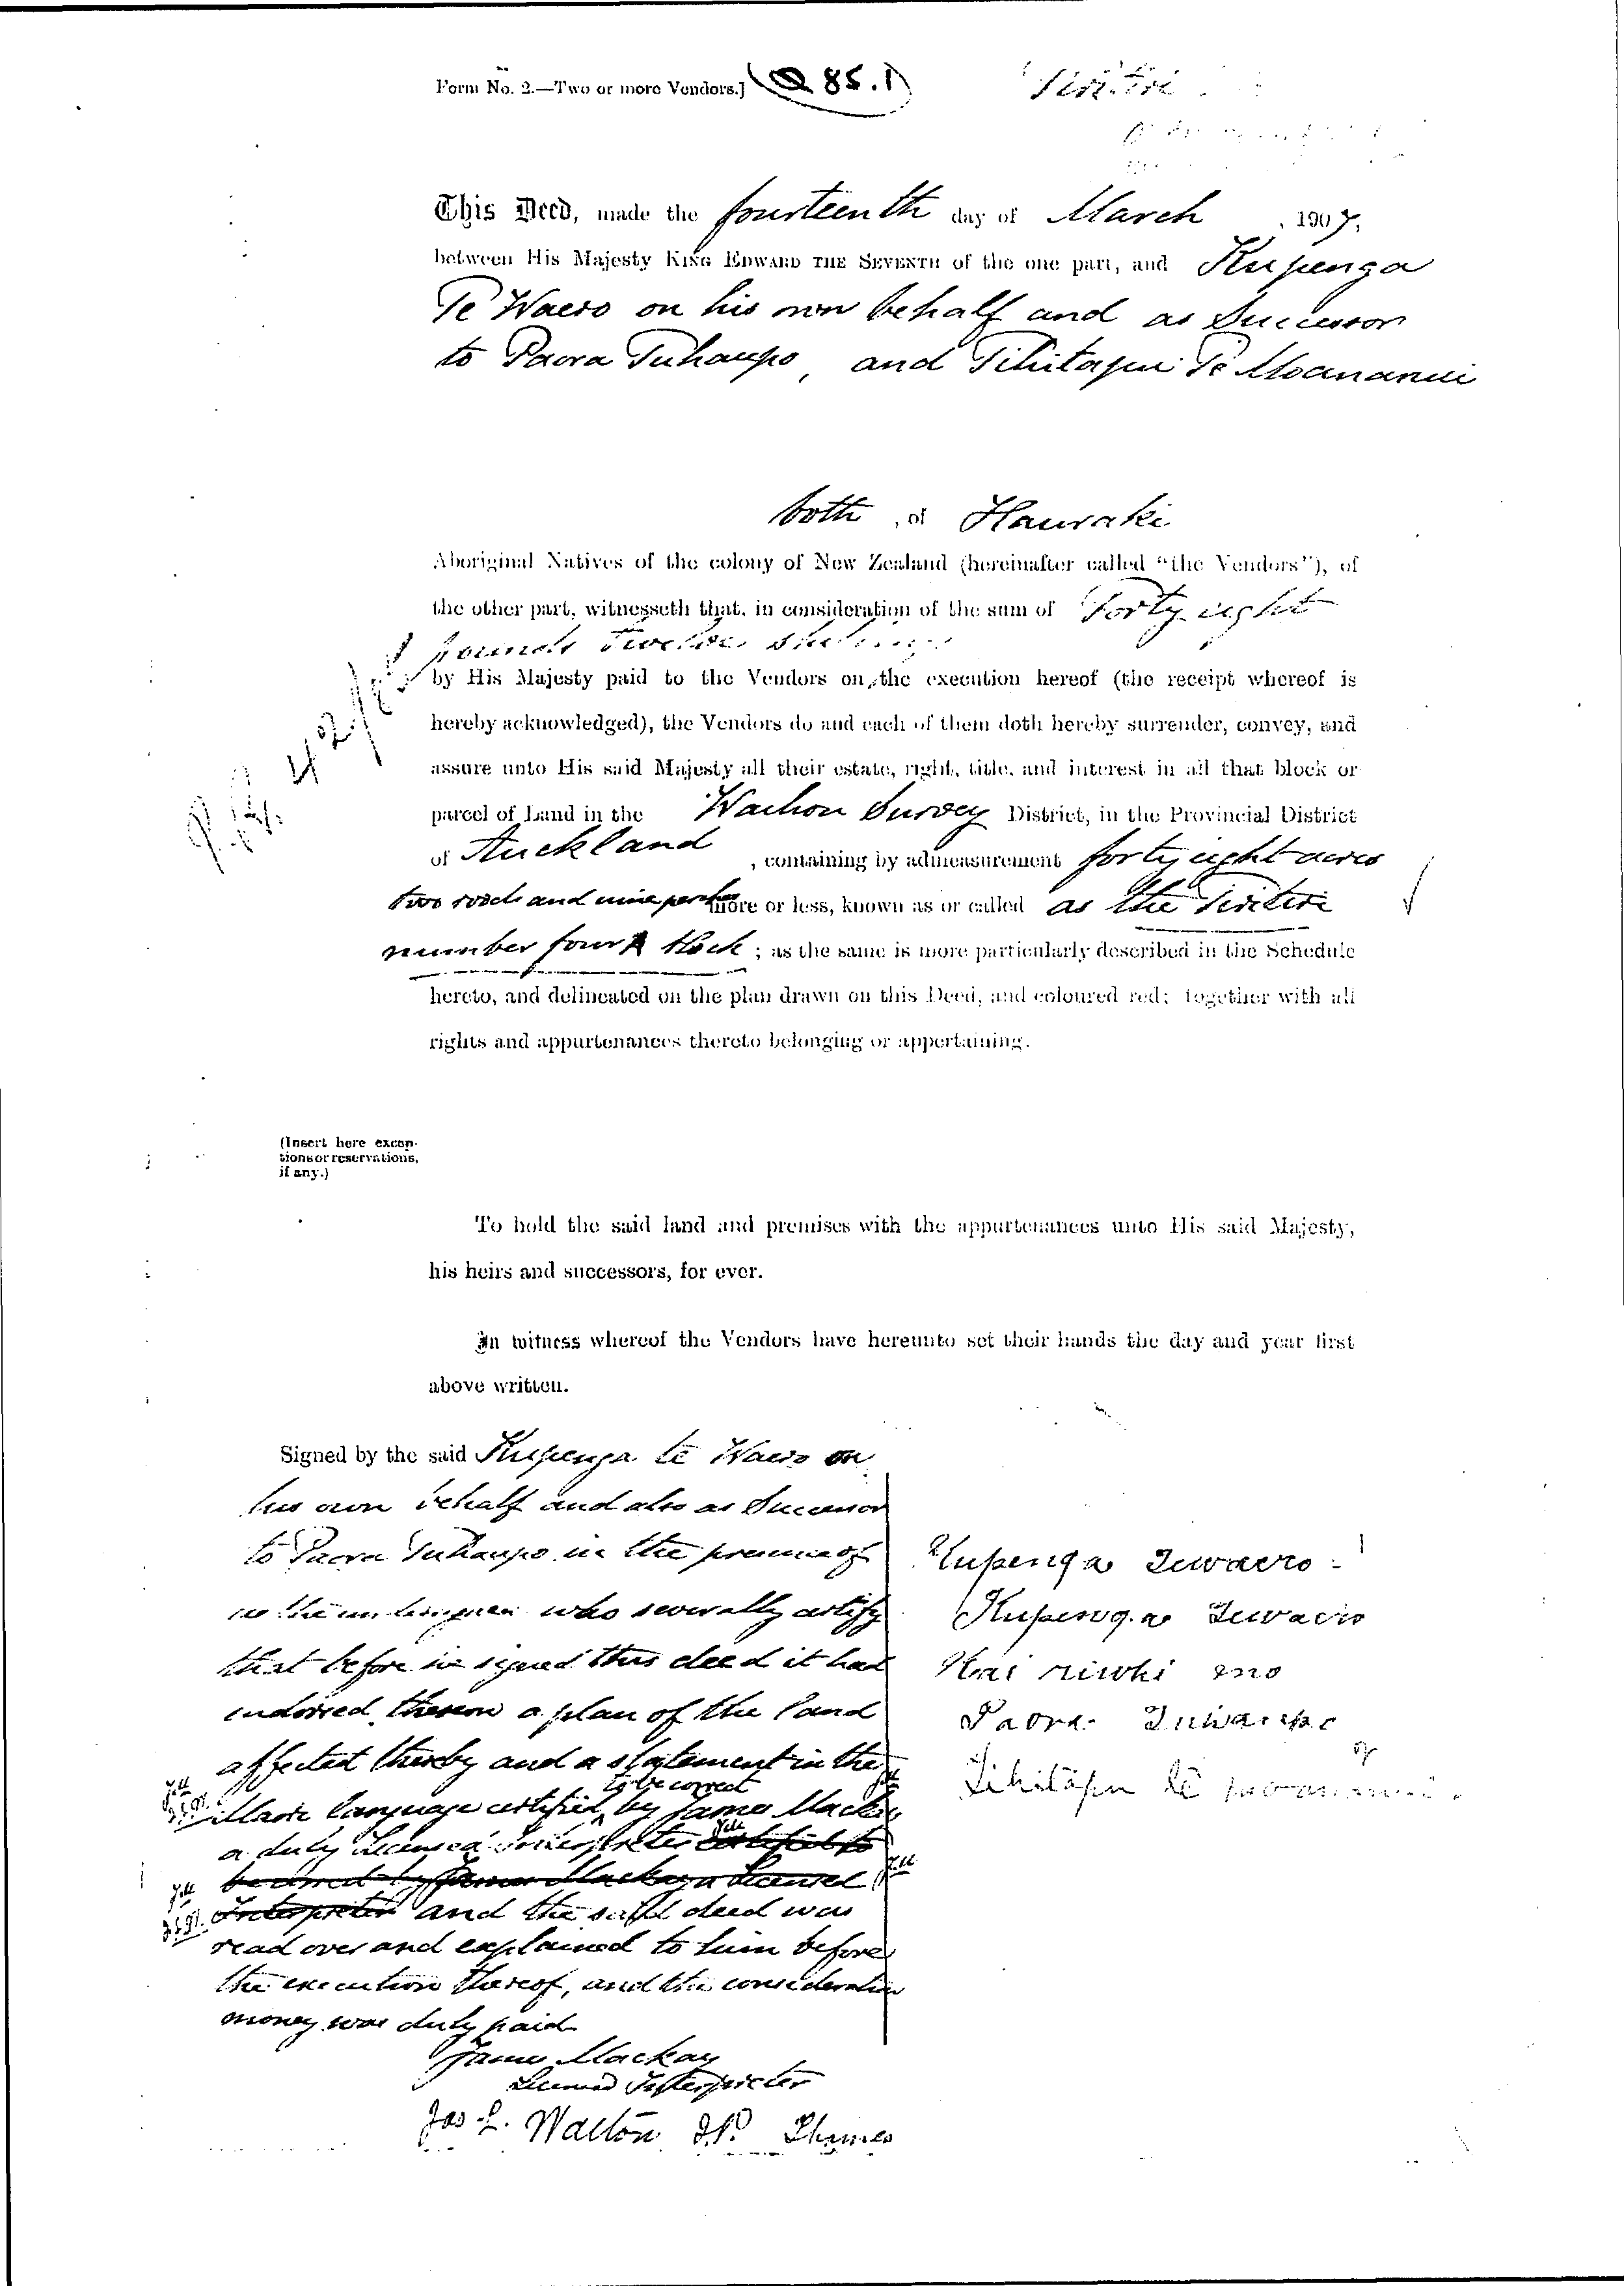 Form No. 2.—Two or more Vendors.] Q 85.1
This Deed, made the fourteenth day of March , 1907,
between His Majesty KING EDWARD THE SEVENTH of the one part, and Kupenga
Te Waero on his own behalf and as Successor
to Paora Tuhaupo, and Tihitapu Te Moananui
both , of Hauraki
Aboriginal Natives of the colony of New Zealand (hereinafter called "the Vendors"), of
the other part, witnesseth that, in consideration of the sum of Forty eight
pounds twelve
by His Majesty paid to the Vendors on the execution hereof (the receipt whereof is
hereby acknowledged), the Vendors do and each of them doth hereby surrender, convey, and
assure unto His said Majesty all their estate, right, title, and interest in all that block or
parcel of Land in the Waihou Survey District, in the Provincial District
of Auckland , containing by admeasurement forty eight acres
two roods and nine perches more or less, known as or called as the
number four Block ; as the same is more particularly described in the Schedule
hereto, and delineated on the plan drawn on this Deed, and coloured red; together with all
rights and appurtenances thereto belonging or appertaining.
(Insert here excep-
tions or reservations,
if any.)
To hold the said land and premises with the appurtenances unto His said Majesty,
his heirs and successors, for ever.
In witness whereof the Vendors have hereunto set their hands the day and year first
above written.
Signed by the said Kupenga te Waero on
his own behalf and also as Successor
to Paora Tuhaupo in the presence of
who severally certify
that before he signed this deed it had
indorsed thereon a plan of the land
affected thereby and a statement in the
to be correct
Maori language certified by James Mackay
a duly Licensed Interpreter
Interpreter and the said deed was
read over and explained to him before
the execution thereof, and the consideration
money was duly paid
James Mackay
Licensed Interpreter
Jas L. Walton J.P. Thames
Kupenga Tewaero
Kupenga Tewaero
Kai riiwhi mo
Paora Tuhaupo
Tihitapu te moananui